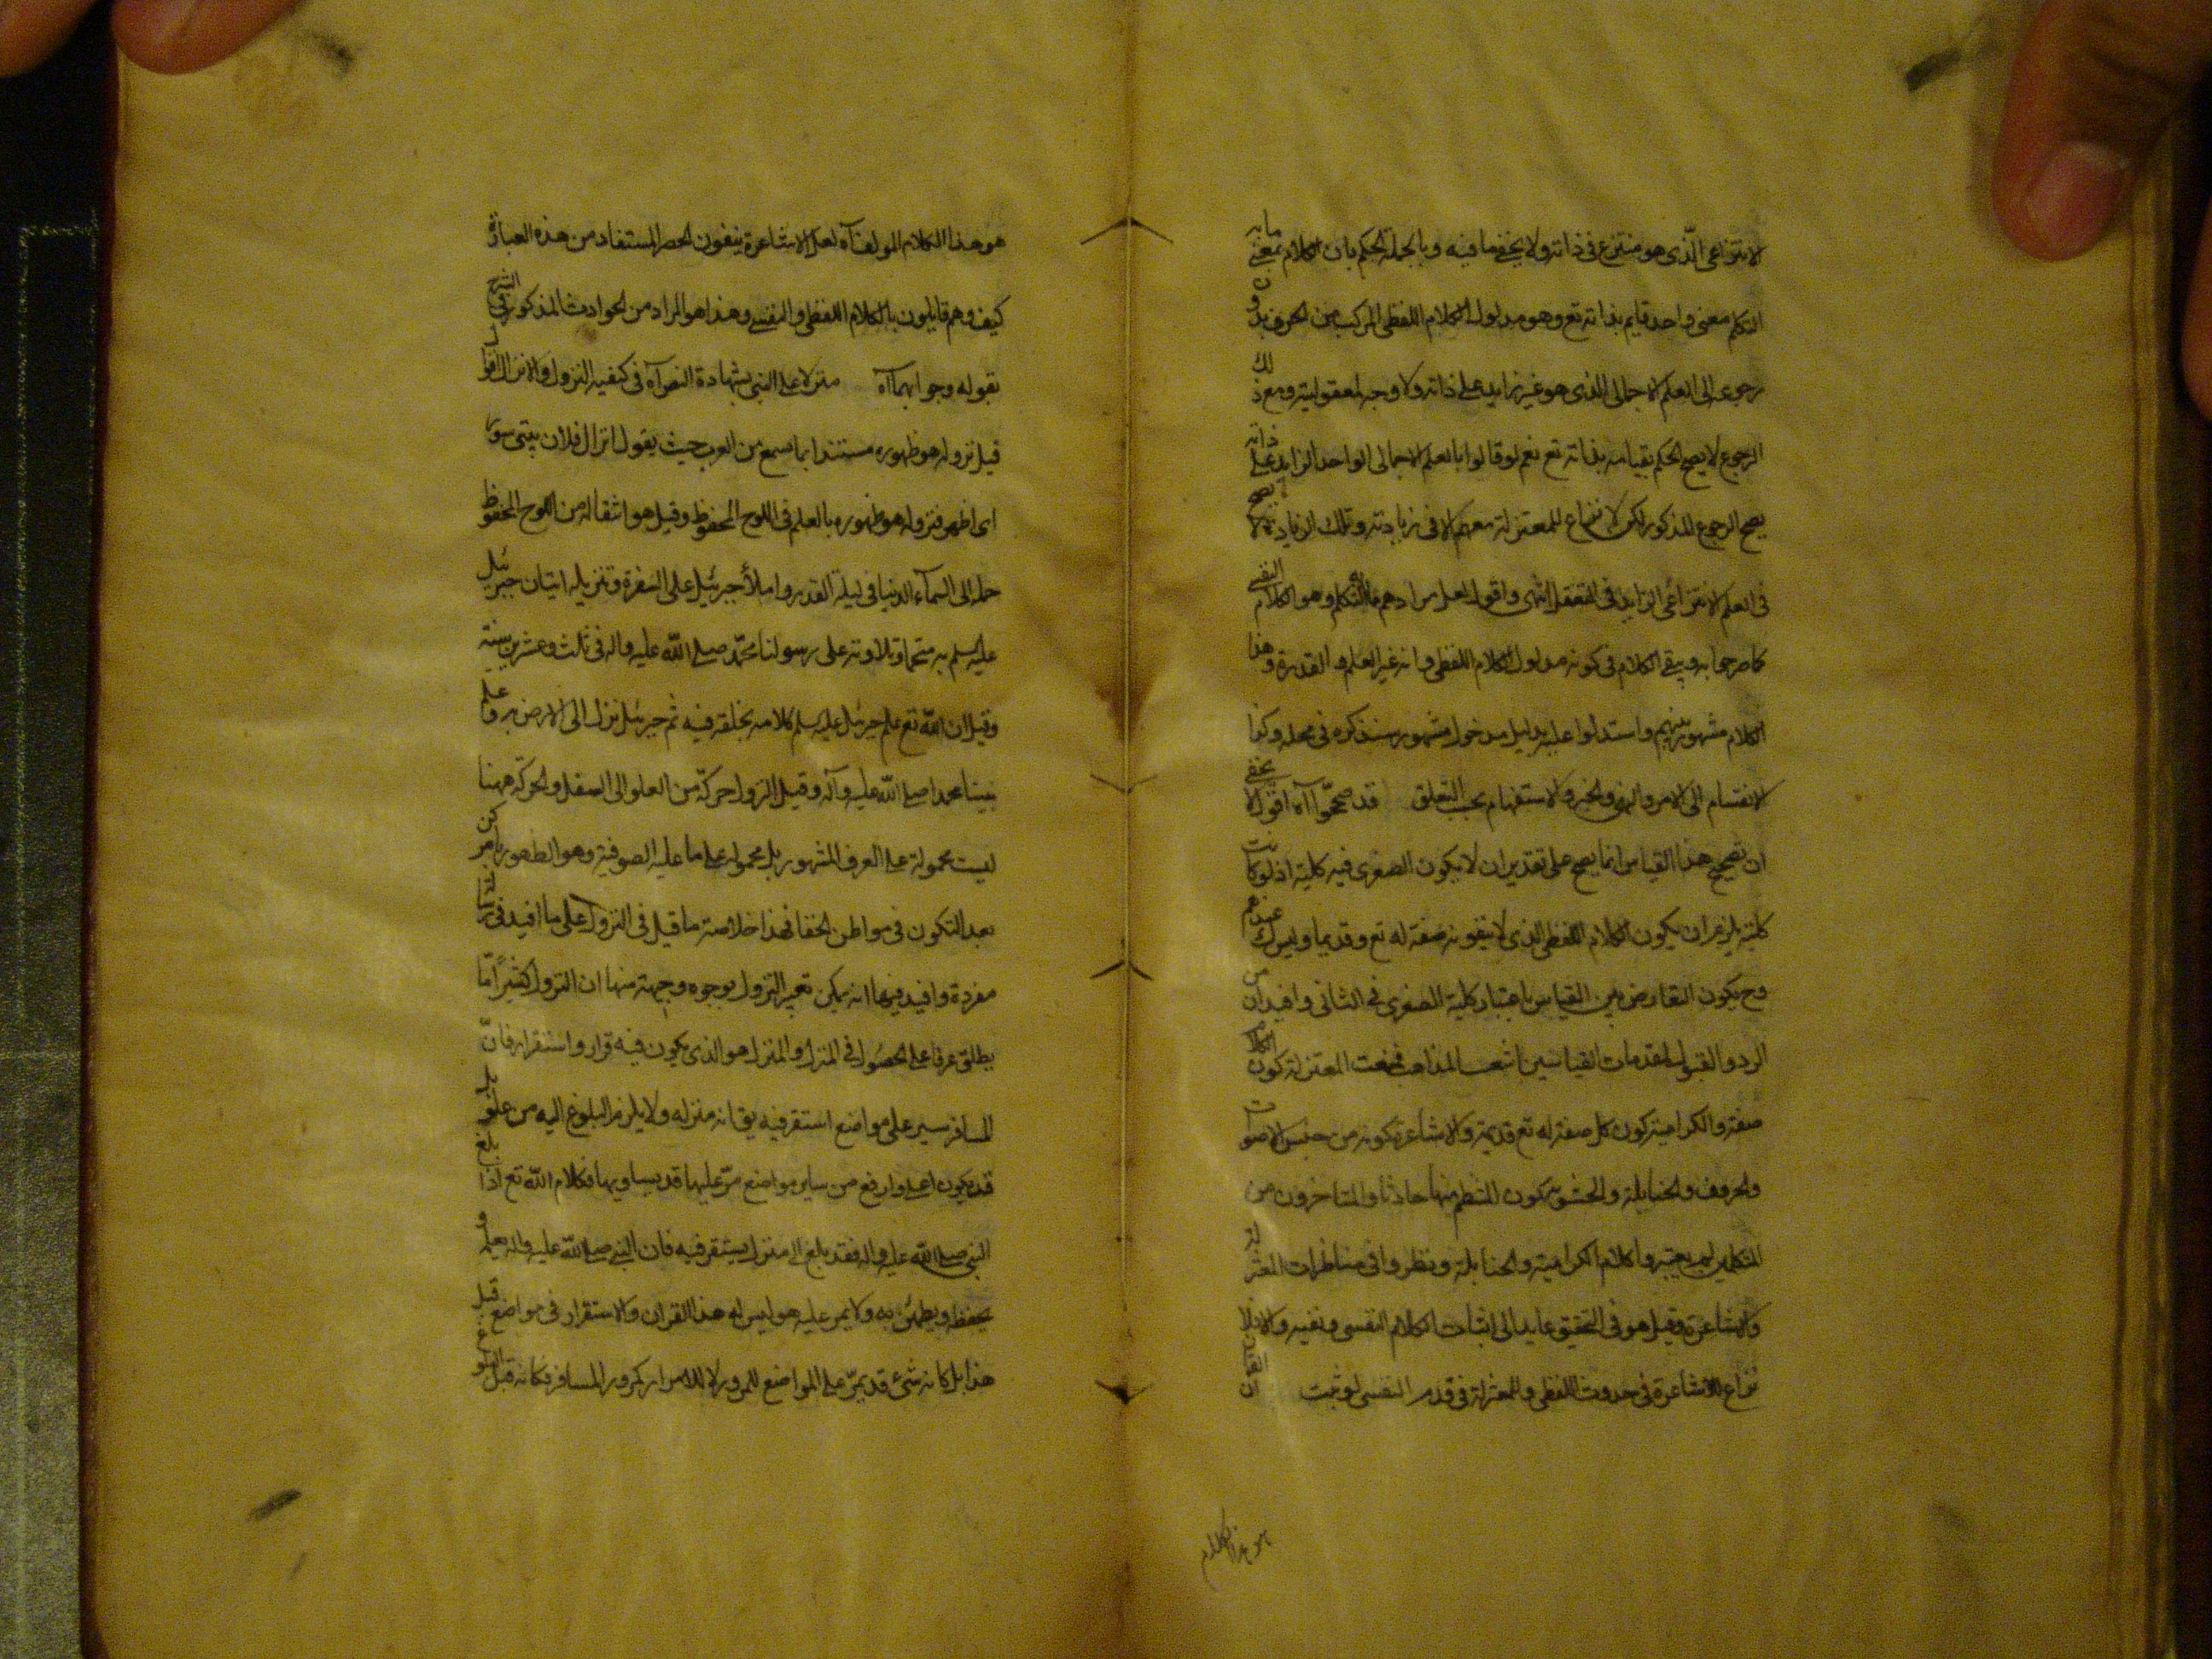 الانتزاعى الذى هو منتزع فى ذاته ولا يخفى ما فيه وبالجملة الحكم بان الكلام بمعنى ما به
التكلم معنى واحد قايم بذاته تع وهو مدلول الكلام اللفظى المركب من الحروف بدون
رجوعه الى العلم الاجمالى الذى هو غير زايد على ذاته ولا وجه لمعقوليته ومع ذلك
الرجوع لا يصح الحكم بقيامه بذاته تع نعم لو قالوا بالعلم الاجمالى الواحد الزايد على ذاته
يصح الرجوع المذكور لكن لا نزاع للمعتزلة معهم الا فى زيادته وتلك الزيادة لا يصح
فى العلم الانتزاعى الزايد فى التعقل انتهى واقول لعل مرادهم ما به التكلم وهو الكلام النفسى
كما صرحوا به ويبقى الكلام فى كونه مدلول الكلام اللفظى وانه غير العلم والقدرة وهذا
الكلام مشهور بينهم واستدلوا عليه بدليل مدخول مشهور سنذكره فى محله وكذا
الانقسام الى الامر والنهى والخبر والاستفهام بحسب التعلق قد صححوا آه اقول لا يخفى
ان تصحيح هذا القياس انما يصح على تقدير ان لا يكون الصغرى فيه كلية اذ لو كانت
كلية يلزم ان يكون الكلام اللفظى الذى لا ينفونه صفة له تع وقديما وليس ك عندهم
وح يكون التعارض بين القياس باعتبار كلية الصغرى فى الثانى وافيد ان من
الرد والقبول لمقدمات القياسين انشعب المذاهب فمنعت المعتزلة كون الكلام
صفة والكرامية كون كل صفة له تع قديمة والاشاعرة كونه من جنس الاصوات
والحروف والحنابلة والحشوية كون المنتظم منها حادثا والمتاخرون من
المتكلمين لم يعتبروا كلام الكرامية والحنابلة ونظروا فى مناظرات المعتزلة
والاشاعرة وقيل هو فى التحقيق عايد الى اثبات الكلام النفسى ونفيه والا فلا
نزاع للاشاعرة فى حدوث اللفظى والمعتزلة فى قدم النفسى لو ثبت ان القران
هو هذا الكلام
هو هذا الكلام المولف آه لعل الاشاعرة ينفون الحصر المستفاد من هذه العبارة
كيف وهم قايلون بالكلام اللفظى والنفسى وهذا هو المراد من الحوادث المذكور فى الشرح
بقوله وجوابهما آه منزلا على النبى بشهادة النص آه فى كيفية النزول والانزال اقوال
قيل نزوله هو ظهوره مستندا بما سمع من العرب حيث يقول انزال فلان بيتى سورا
اى اظهر فنزوله هو ظهوره بالعلم فى اللوح المحفوظ وقيل هو انتقاله من اللوح المحفوظ
حمله الى السماء الدنيا فى ليلة القدر واملأ جبرئيل على السفرة وتنزيله اتيان جبرئيل
عليه السلم به متحما وتلاوته على رسولنا محمد صلى الله عليه واله فى ثلث وعشرين سنة
وقيل ان الله تع علم جبرئيل عليه السلم كلامه بخلقه فيه ثم جبرئيل نزل الى الارض به وعلم
نبينا محمدا صلى الله عليه وآله وقيل النزول حركة من العلو الى السفل والحركة ههنا
ليست محمولة على العرف المشهور بل محمولة على ما عليه الصوفية وهو الظهور بامر كن
بعد التكون فى مواطن الخفا فهذا خلاصة ما قيل فى النزول على ما افيد فى رسالة
مفردة وافيد فيها انه يمكن تعبير النزول بوجوه وجيهة منها ان النزول كثيرا ما
يطلق عرفا على الحصول فى المنزل والمنزل هو الذى يكون فيه قرار واستقرار فان
المسافر سير على مواضع استقر فيه يق انه منزله ولا يلزم البلوغ اليه من علو بل
قد يكون اعلى وارفع من ساير مواضع مر عليها قد يساويها فكلام الله تع اذا بلغ
النبى صلى الله عليه واله فقد بلغ الى منزل يستقر فيه فان النبى صلى الله عليه واله يعلمه و
يحفظه ويطمئن به ولا يمر عليه هو ليس له هذا القران والاستقرار فى مواضع قبل
هذا بل كانه شئ قد يمر على المواضع للمرور لا للاستمرار كمرور المسافر فكانه قبل البلوغ